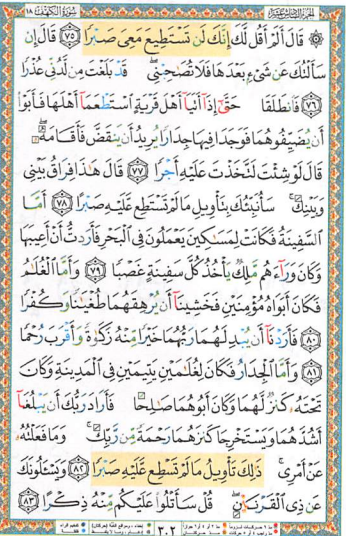 الجزء السادس عشر سورة الكهف ١٨
۞ قَالَ أَلَمْ أَقُل لَّكَ إِنَّكَ لَن تَسْتَطِيعَ مَعِىَ صَبْرًا ٧٥ قَالَ إِن
سَأَلْتُكَ عَن شَىْءٍۭ بَعْدَهَا فَلَا تُصَٰحِبْنِى ۖ قَدْ بَلَغْتَ مِن لَّدُنِّى عُذْرًا
٧٦ فَٱنطَلَقَا حَتَّىٰٓ إِذَآ أَتَيَآ أَهْلَ قَرْيَةٍ ٱسْتَطْعَمَآ أَهْلَهَا فَأَبَوْا۟
أَن يُضَيِّفُوهُمَا فَوَجَدَا فِيهَا جِدَارًا يُرِيدُ أَن يَنقَضَّ فَأَقَامَهُۥ ۖ
قَالَ لَوْ شِئْتَ لَتَّخَذْتَ عَلَيْهِ أَجْرًا ٧٧ قَالَ هَٰذَا فِرَاقُ بَيْنِى
وَبَيْنِكَ ۚ سَأُنَبِّئُكَ بِتَأْوِيلِ مَا لَمْ تَسْتَطِع عَّلَيْهِ صَبْرًا ٧٨ أَمَّا
ٱلسَّفِينَةُ فَكَانَتْ لِمَسَٰكِينَ يَعْمَلُونَ فِى ٱلْبَحْرِ فَأَرَدتُّ أَنْ أَعِيبَهَا
وَكَانَ وَرَآءَهُم مَّلِكٌ يَأْخُذُ كُلَّ سَفِينَةٍ غَصْبًا ٧٩ وَأَمَّا ٱلْغُلَٰمُ
فَكَانَ أَبَوَاهُ مُؤْمِنَيْنِ فَخَشِينَآ أَن يُرْهِقَهُمَا طُغْيَٰنًا وَكُفْرًا
٨٠ فَأَرَدْنَآ أَن يُبْدِلَهُمَا رَبُّهُمَا خَيْرًا مِّنْهُ زَكَوٰةً وَأَقْرَبَ رُحْمًا
٨١ وَأَمَّا ٱلْجِدَارُ فَكَانَ لِغُلَٰمَيْنِ يَتِيمَيْنِ فِى ٱلْمَدِينَةِ وَكَانَ
تَحْتَهُۥ كَنزٌ لَّهُمَا وَكَانَ أَبُوهُمَا صَٰلِحًا فَأَرَادَ رَبُّكَ أَن يَبْلُغَآ
أَشُدَّهُمَا وَيَسْتَخْرِجَا كَنزَهُمَا رَحْمَةً مِّن رَّبِّكَ ۚ وَمَا فَعَلْتُهُۥ
عَنْ أَمْرِى ۚ ذَٰلِكَ تَأْوِيلُ مَا لَمْ تَسْطِع عَّلَيْهِ صَبْرًا ٨٢ وَيَسْـَٔلُونَكَ
عَن ذِى ٱلْقَرْنَيْنِ ۖ قُلْ سَأَتْلُوا۟ عَلَيْكُم مِّنْهُ ذِكْرًا ٨٣
٣٠٢